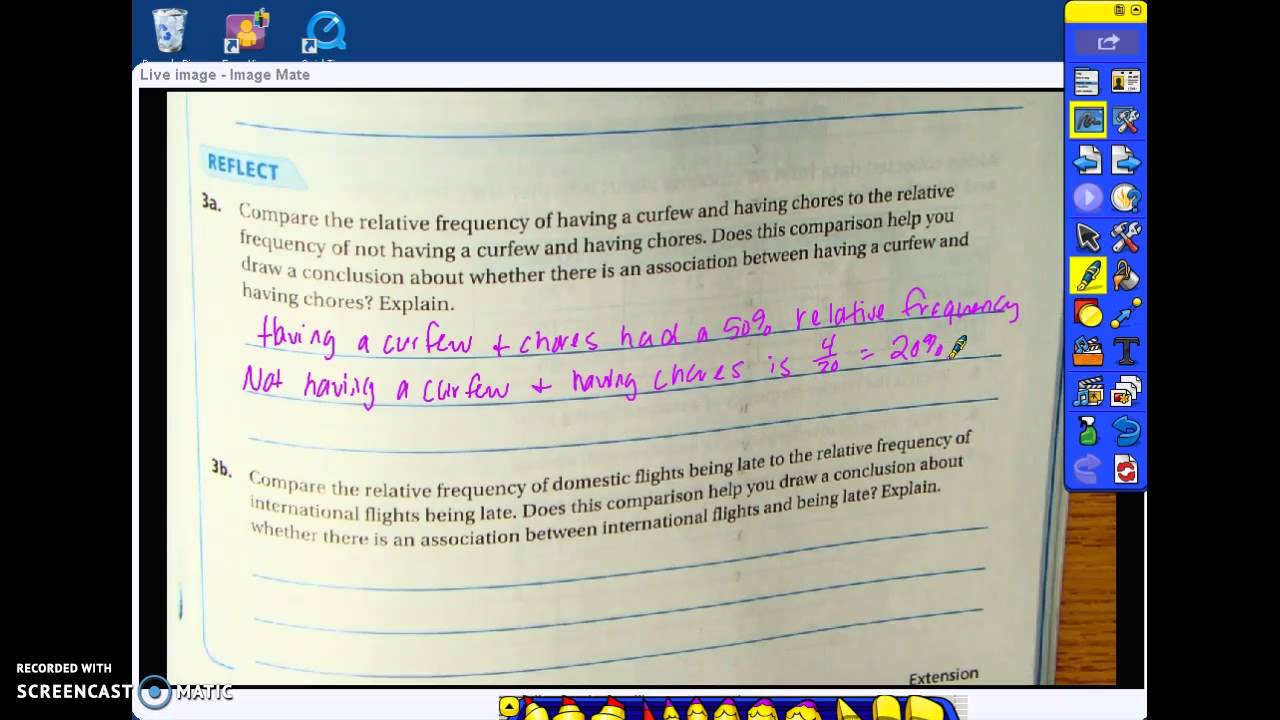 Live image - Image Mate
REFLECT
3a. Compare the relative frequency of having a curfew and having chores to the relative
frequency of not having a curfew and having chores. Does this comparison help you
draw a conclusion about whether there is an association between having a curfew and
having chores? Explain.
Having a curfew + chores had a 50% relative frequency
Not having a curfew + having chores is 4/20 = 20%
3b. Compare the relative frequency of domestic flights being late to the relative frequency of
international flights being late. Does this comparison help you draw a conclusion about
whether there is an association between international flights and being late? Explain.
Extension
RECORDED WITH
SCREENCAST MATIC